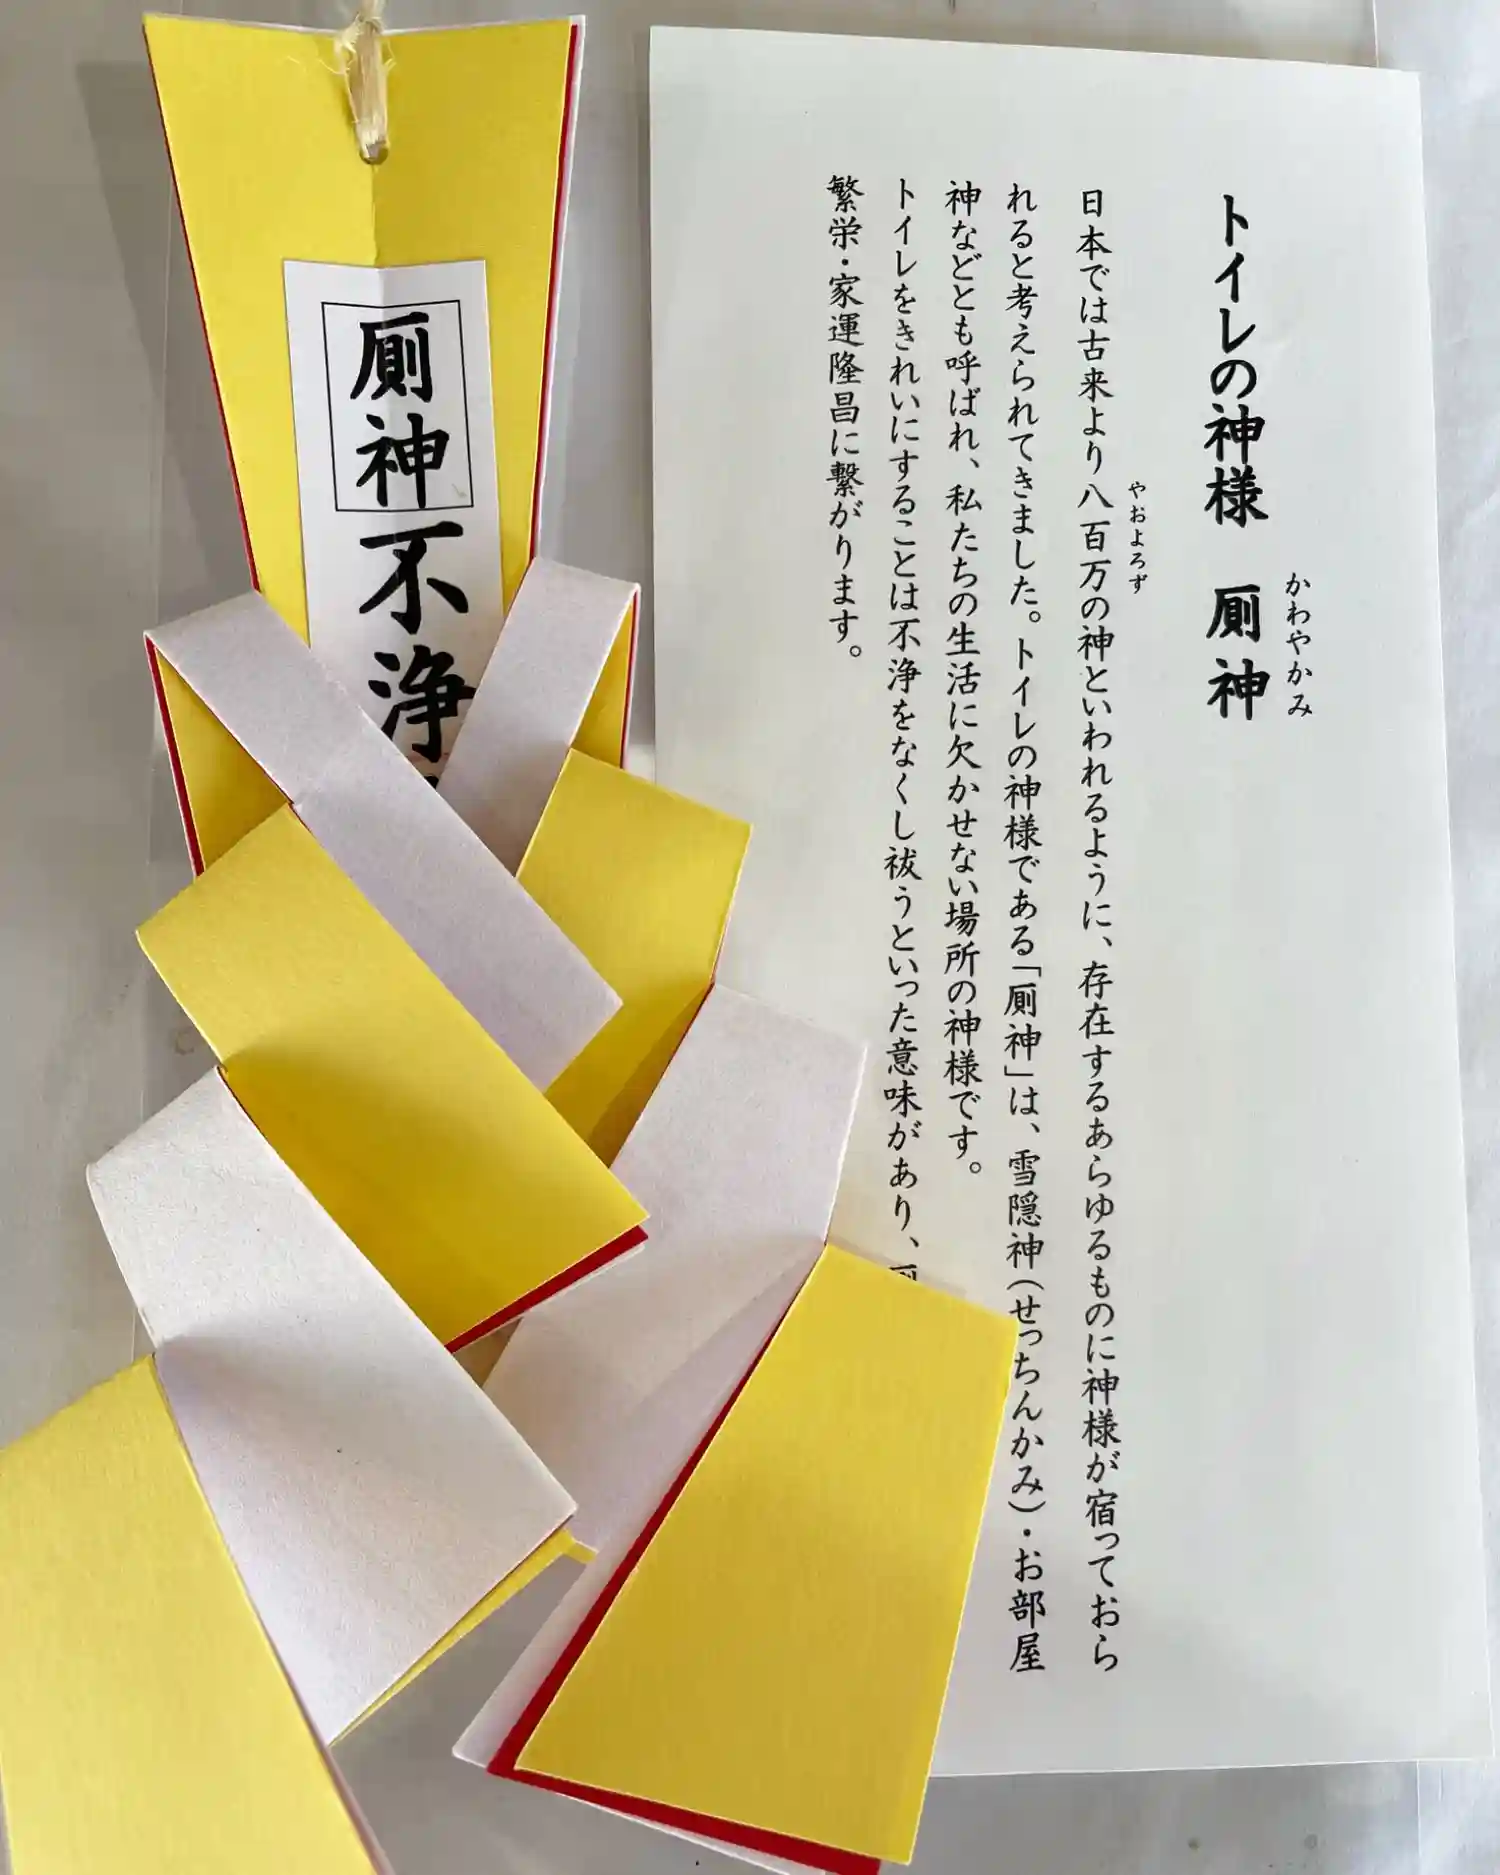 トイレの神様　厠神
かわやかみ
日本では古来より八百万の神といわれるように、存在するあらゆるものに神様が宿っておら
やおよろず
れると考えられてきました。トイレの神様である「厠神」は、雪隠神（せっちんかみ）・お部屋
神などとも呼ばれ、私たちの生活に欠かせない場所の神様です。
トイレをきれいにすることは不浄をなくし祓うといった意味があり、
繁栄・家運隆昌に繋がります。
厠神
不浄